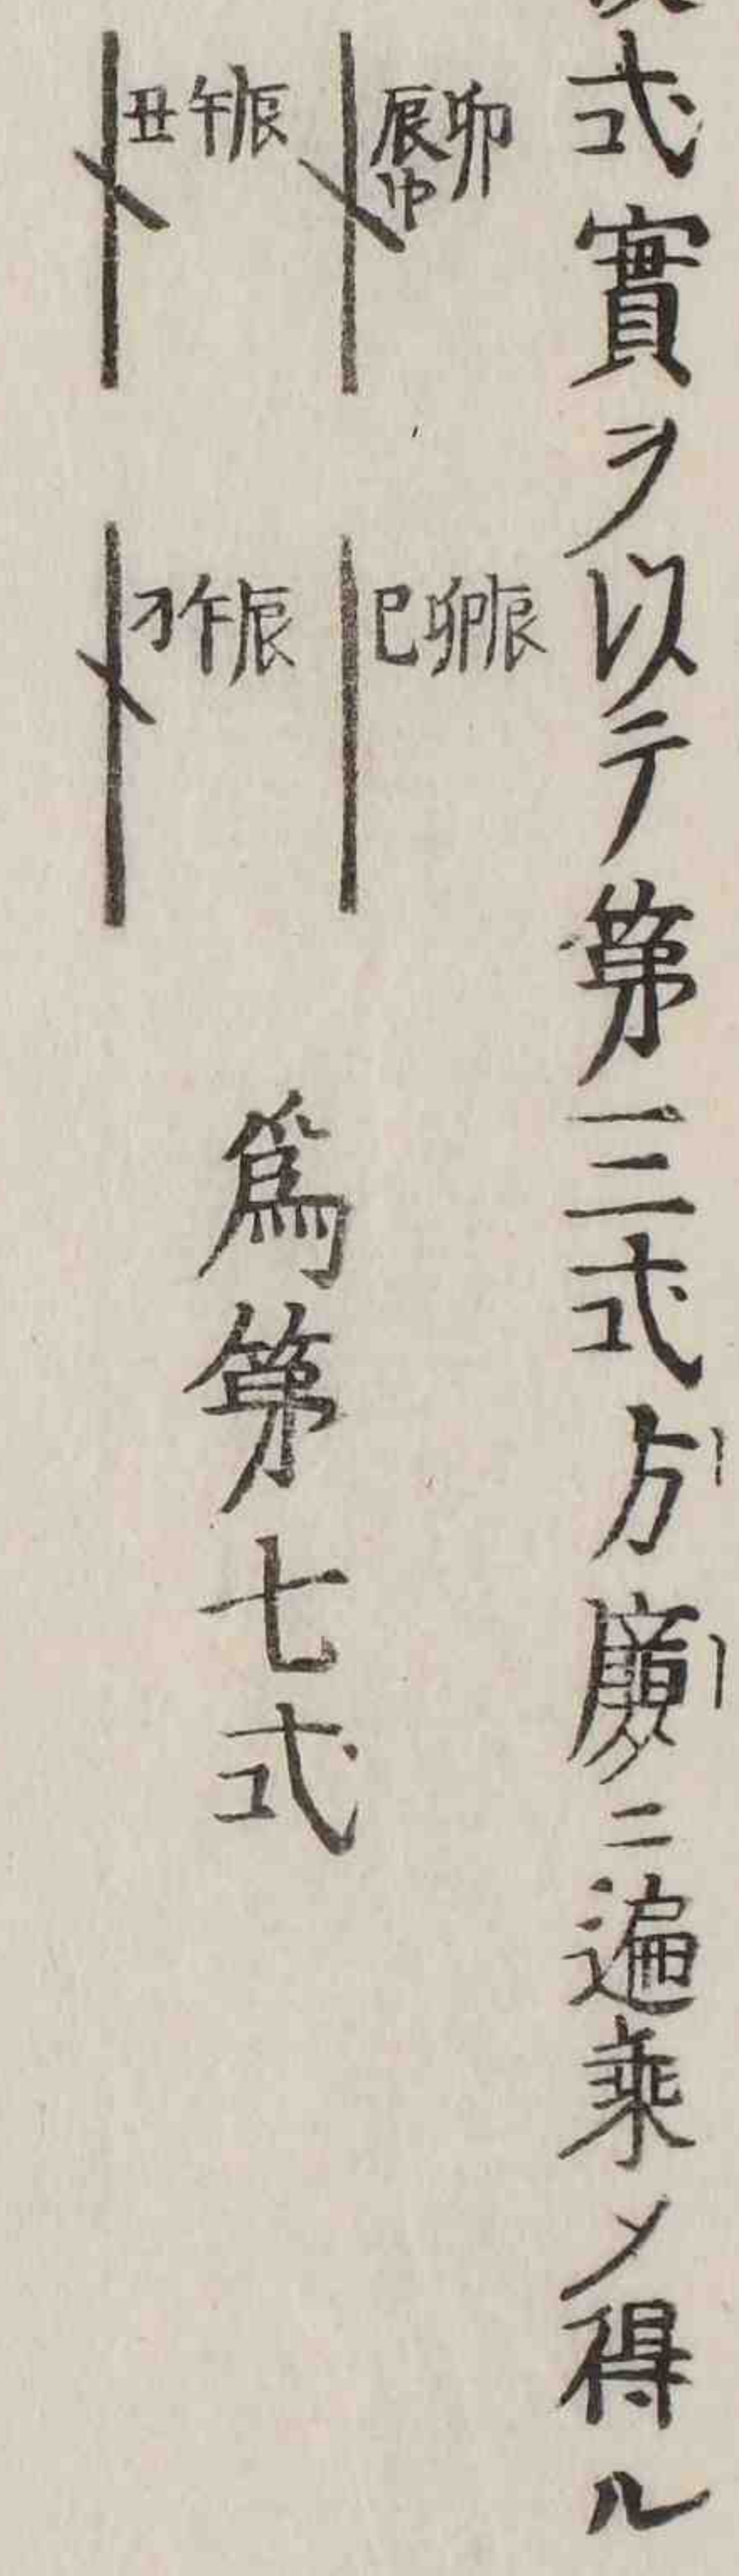 式實ヲ以テ第三式方廣ニ遍乗〆得ル
辰巾卯
巳卯辰
丑午辰
午辰
爲第七式